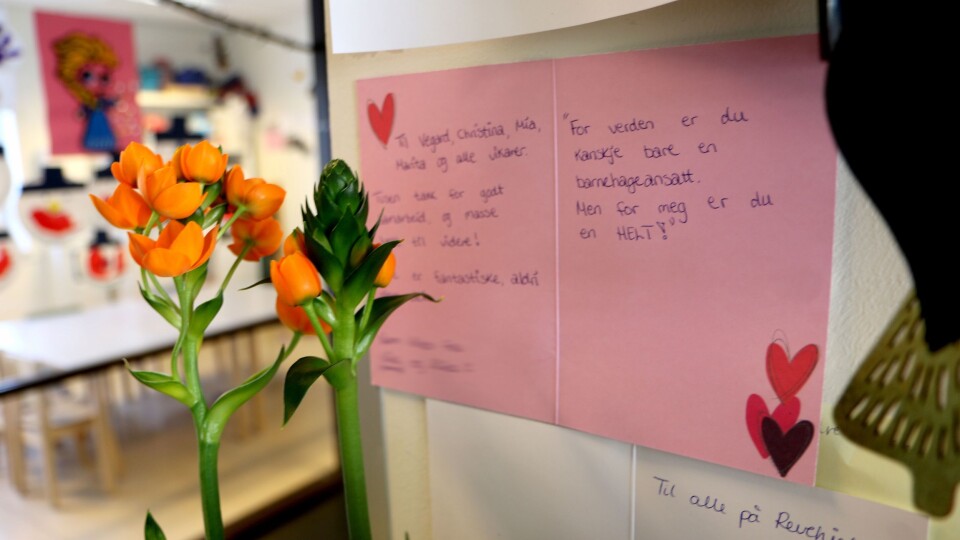 Til Vegard, Christina, Mia,
Marita og alle vikarer.
Tusen takk for godt
samarbeid, og masse
til videre!
er fantastiske, aldri
"For verden er du
kanskje bare en
barnehageansatt.
Men for meg er du
en HELT!"
Til alle på